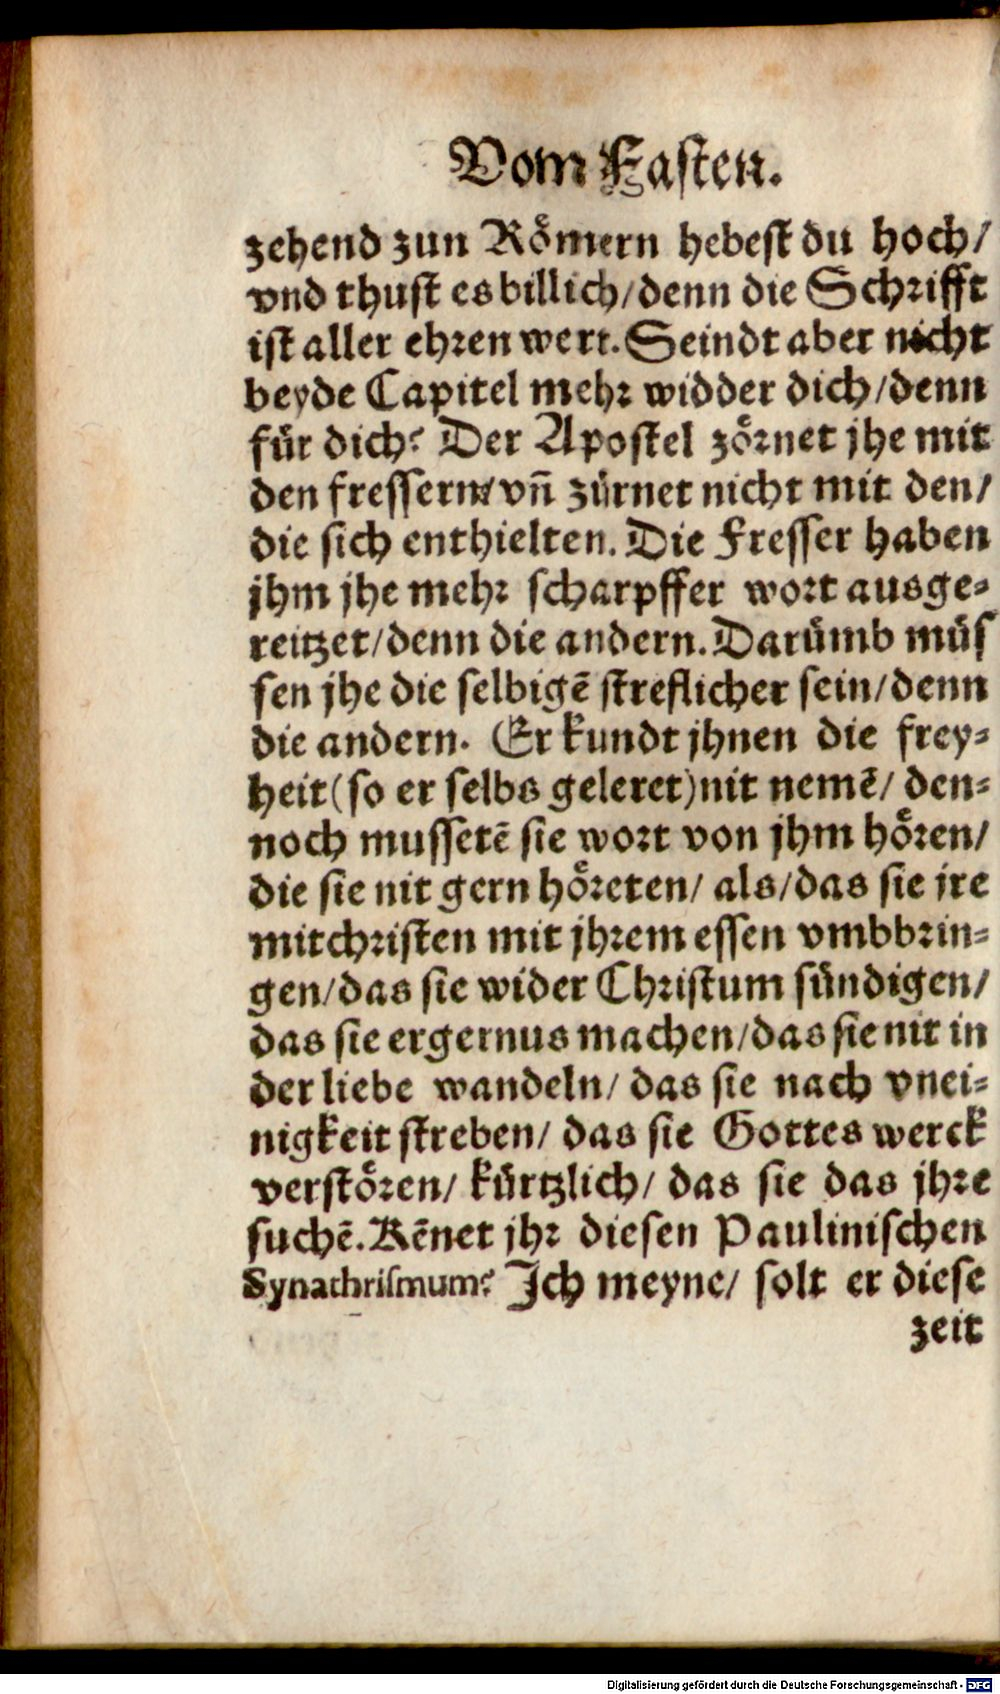 Vom Fasten.
zehend zun Roͤmern hebest du hoch/
vnd thust es billich/denn die Schrifft
ist aller ehren wert. Seindt aber nicht
beyde Capitel mehr widder dich/denn
fuͤr dich? Der Apostel zoͤrnet jhe mit
den fressern/ vn̄ zuͤrnet nicht mit den/
die sich enthielten. Die Fresser haben
jhm jhe mehr scharpffer wort ausge⸗
reitzet/denn die andern. Daruͤmb muͤs
sen jhe die selbigē streflicher sein/denn
die andern. Er kundt jhnen die frey⸗
heit(so er selbs geleret)nit nemē/ den⸗
noch mussetē sie wort von jhm hoͤren/
die sie nit gern hoͤreten/ als/das sie jre
mitchristen mit jhrem essen vmbbrin⸗
gen/das sie wider Christum suͤndigen/
das sie ergernus machen/das sie nit in
der liebe wandeln/ das sie nach vnei⸗
nigkeit streben/ das sie Gottes werck
verstoͤren/ kuͤrtzlich/ das sie das jhre
suchē. Kēnet jhr diesen Paulinischen
Synathrismum? Ich meyne/ solt er diese
zeit
Digitalisierung gefördert durch die Deutsche Forschungsgemeinschaft - DFG